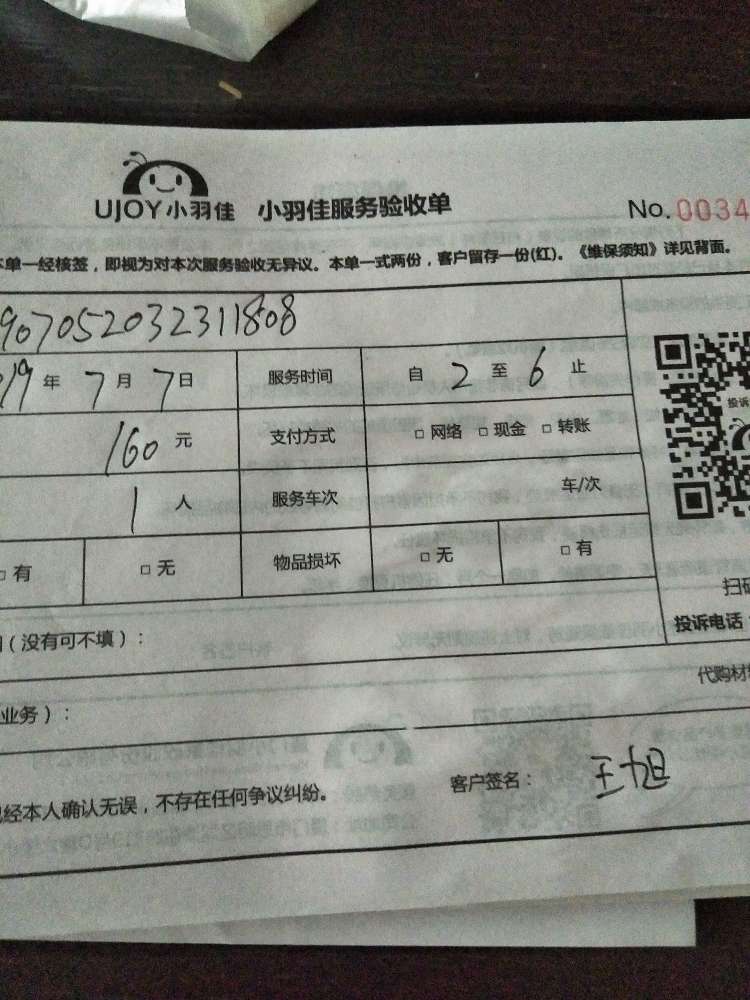 UJOY小羽佳 小羽佳服务验收单 No.0034
本单一经核签，即视为对本次服务验收无异议。本单一式两份，客户留存一份(红)。《维保须知》详见背面。
907052032311808
19年7月7日 服务时间 自2至6止
160元 支付方式 □网络 □现金 □转账
1人 服务车次 车/次
□有 □无 物品损坏 □无 □有
投诉
扫码
（没有可不填）：
投诉电话
代购材料
业务）：
已经本人确认无误，不存在任何争议纠纷。 客户签名：王旭